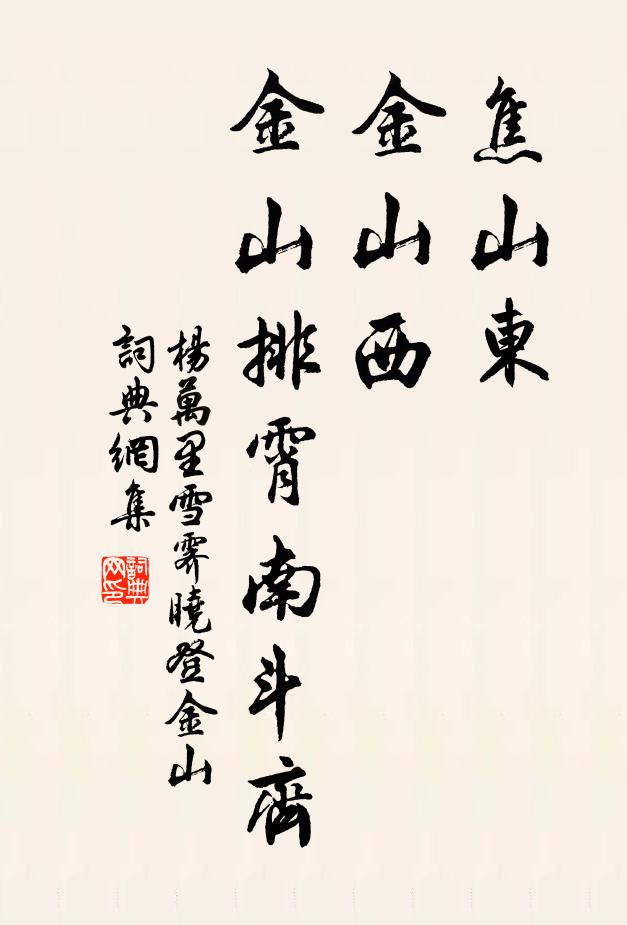 焦山東
金山西
金山排霄南斗齊
楊萬里雪霽曉登金山
詞典網集
詞典網印